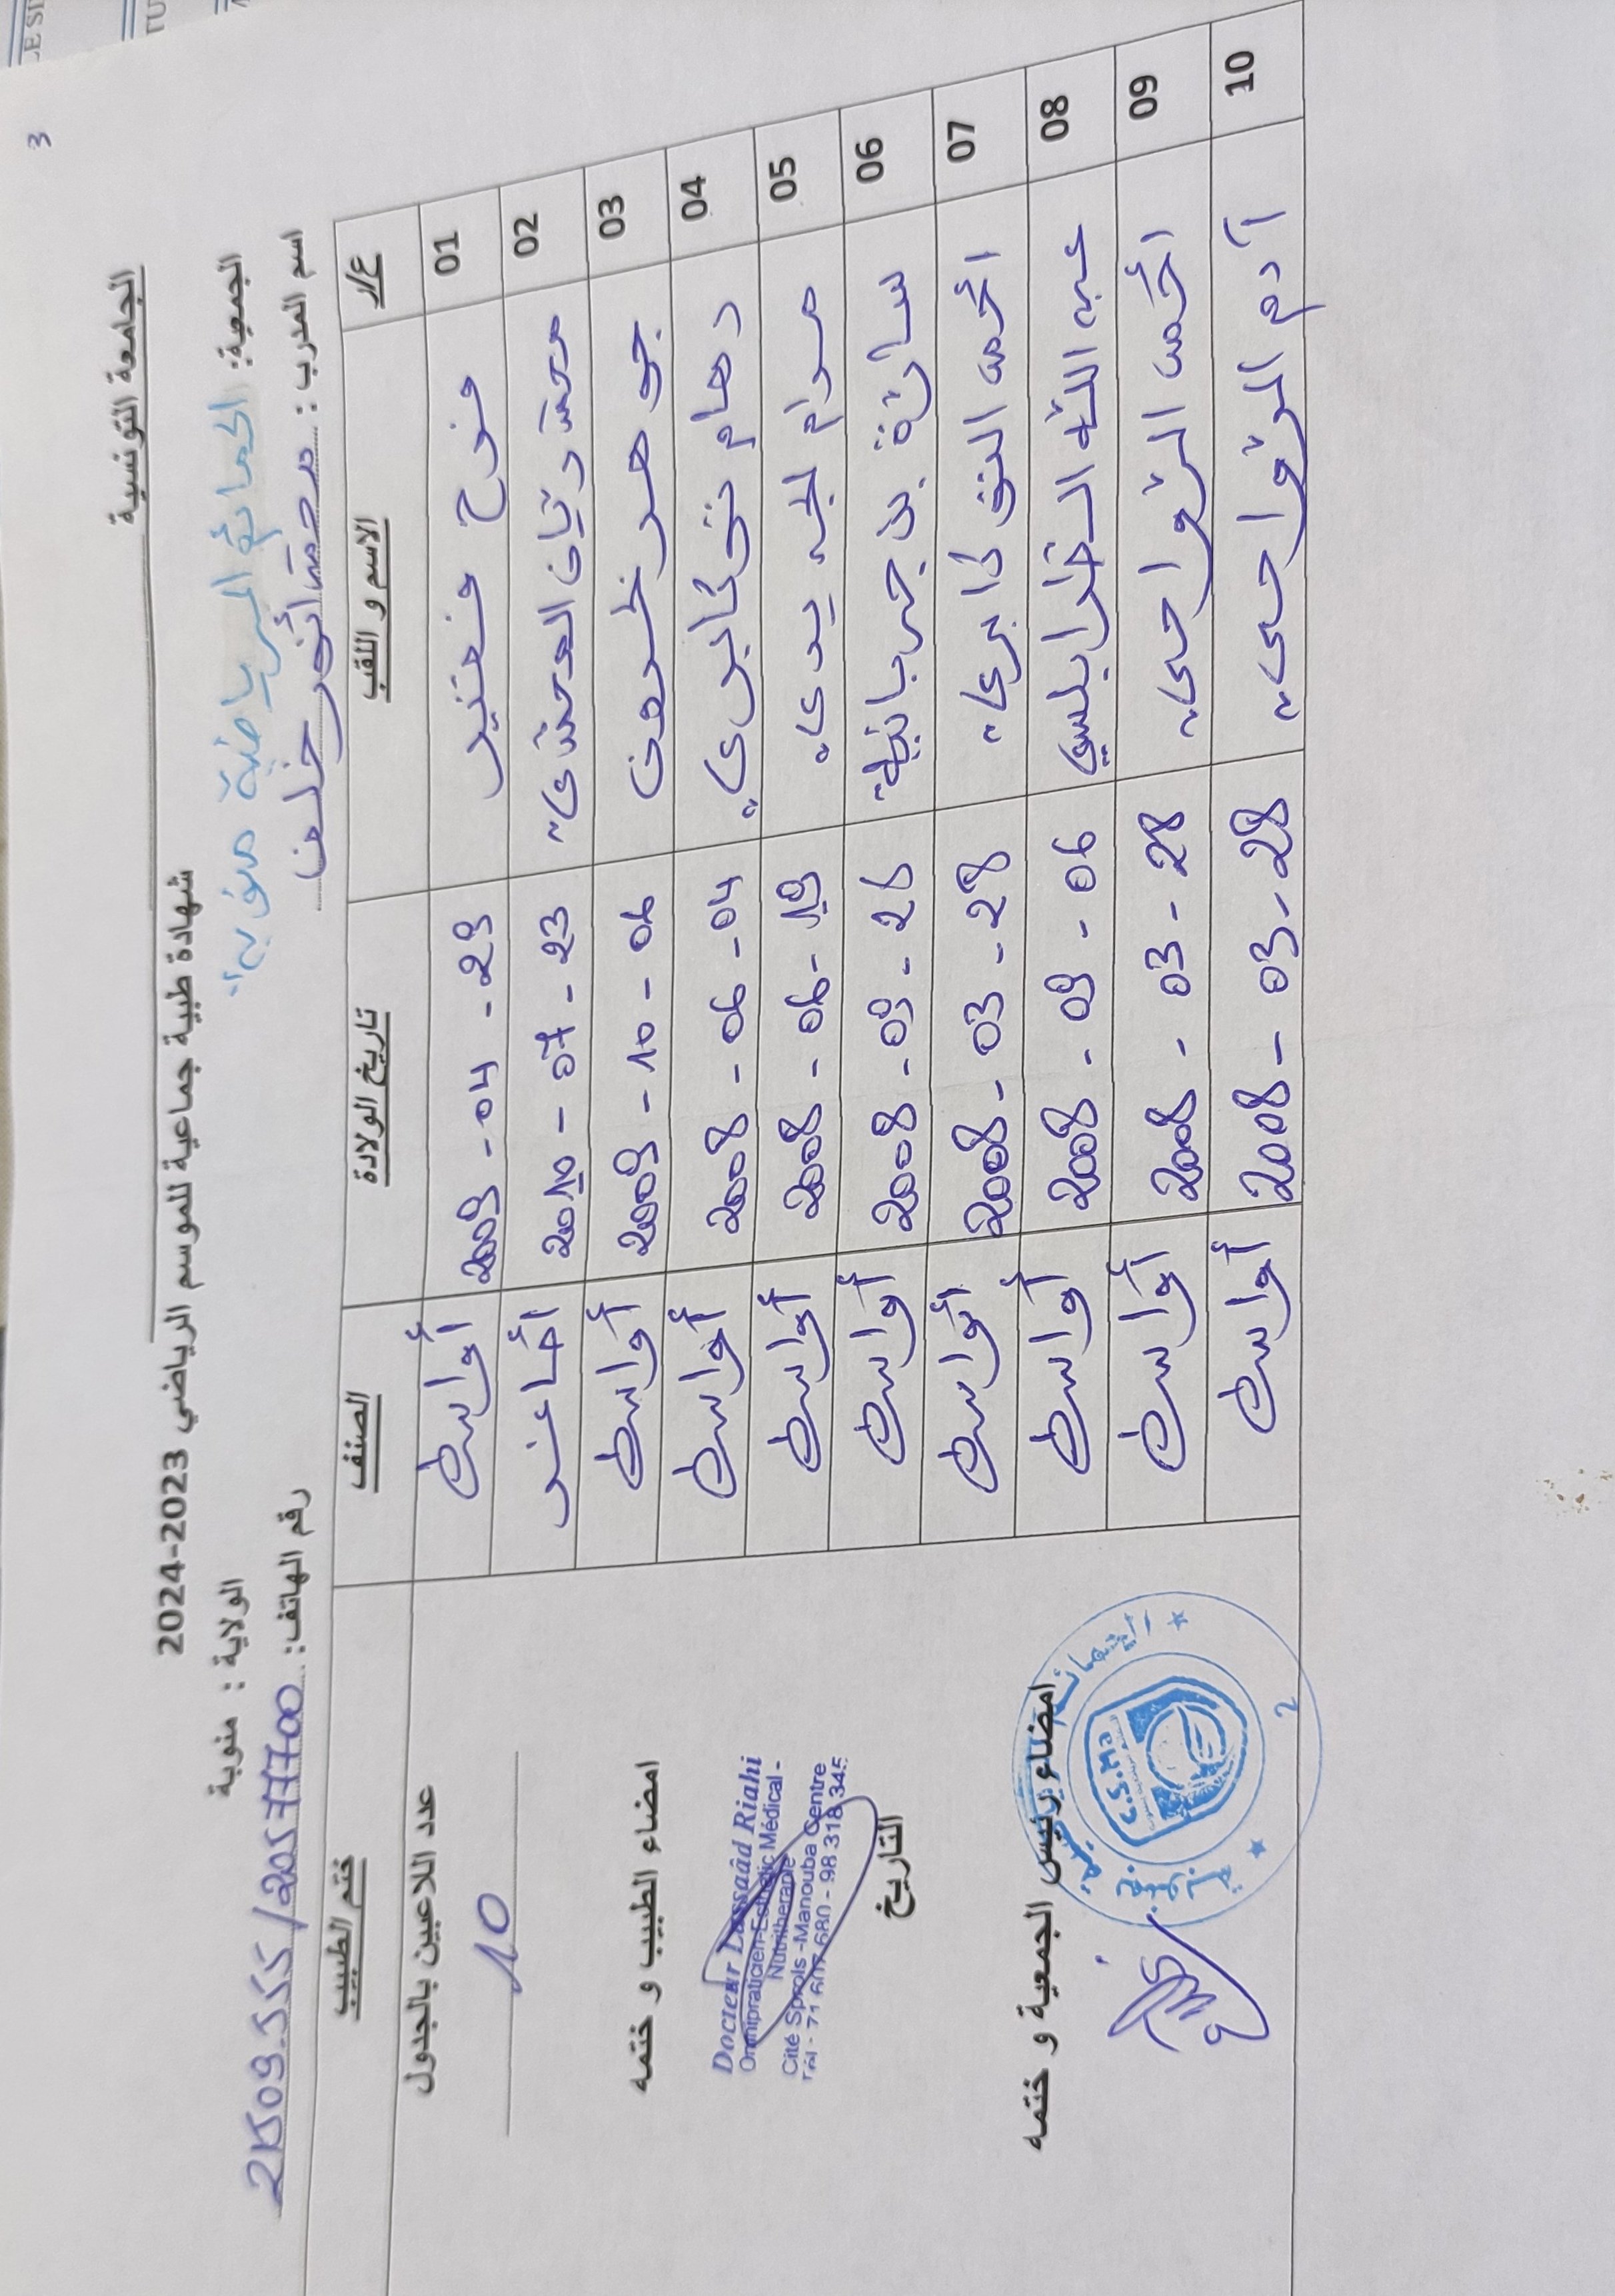 3
الجامعة التونسية
شهادة طبية جماعية للموسم الرياضي 2023-2024
الجمعية: الحمائم الرياضية منوبة الولاية : منوبة
اسم المدرب : محمد أنور خلف رقم الهاتف:
ع/ر الاسم و اللقب تاريخ الولادة الصنف ختم الطبيب
01 فرح فنير 2009 - 04 - 29 أواسط
02 محمد ريان 2010 - 07 - 23 أصاغر
03 جوهر خلف 2009 - 10 - 06 أواسط
04 2008 - 06 - 04 أواسط
05 مرام الجديدي 2008 - 06 - 19 أواسط
06 سارة بن جربانية 2008 - 09 - 26 أواسط
07 أحمد 2008 - 03 - 28 أواسط
08 عبد الله الطرابلسي 2008 - 09 - 06 أواسط
09 أحمد الرواحي 2008 - 03 - 28 أواسط
10 آدم الرواحي 2008 - 03 - 28 أواسط
عدد اللاعبين بالجدول
10
امضاء الطبيب و ختمه
Docteur Lassâd Riahi
Omnipraticien-Esthétic Médical -
Nutritherapie
Cité Sprols -Manouba Centre
Tél - 71 607 680 - 98 318 345
التاريخ
امضاء رئيس الجمعية و ختمه
C.S.Ma